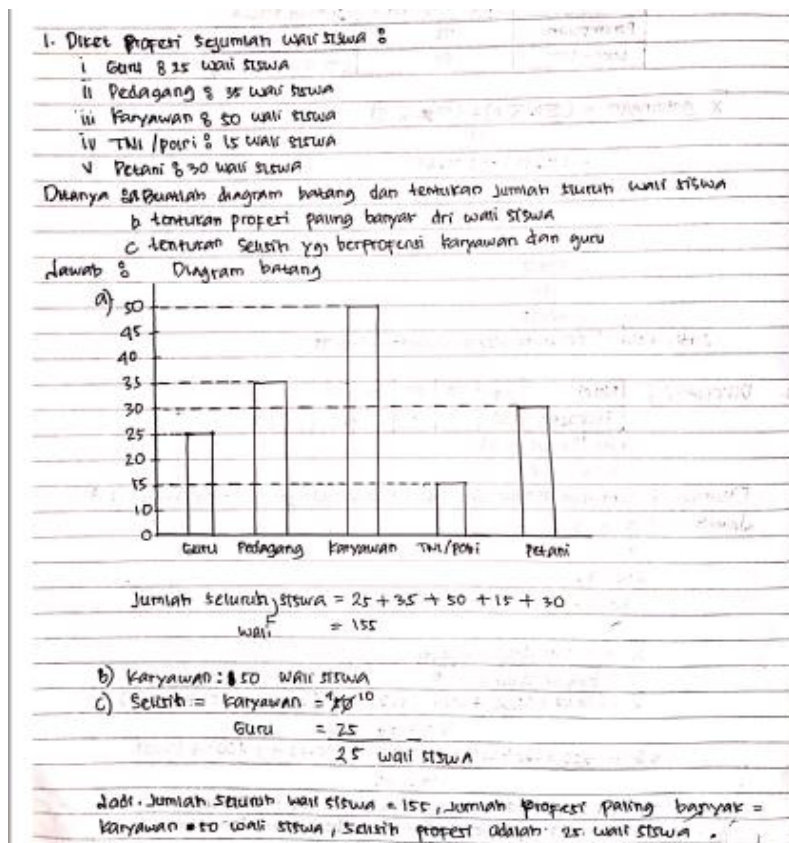 1. Diket profesi sejumlah wali siswa :
i Guru : 25 wali siswa
ii Pedagang : 35 wali siswa
iii Karyawan : 50 wali siswa
iv TNI /polri : 15 wali siswa
v Petani : 30 wali siswa
Ditanya : a Buatlah diagram batang dan tentukan jumlah sluruh wali siswa
b tentukan profesi paling banyak dri wali siswa
c tentukan selisih yg berprofensi karyawan dan guru
Jawab : Diagram batang
a)
50
45
40
35
30
25
20
15
10
0
Guru Pedagang Karyawan TNI/Polri Petani
Jumlah seluruh siswa = 25 + 35 + 50 + 15 + 30
wali = 155
b) Karyawan : 50 wali siswa
c) Selisih = Karyawan = 4 50 10
Guru = 25
25 wali siswa
Jadi. Jumlah seluruh wali siswa = 155, jumlah profesi paling banyak =
karyawan = 50 wali siswa, selisih profesi adalah 25 wali siswa .